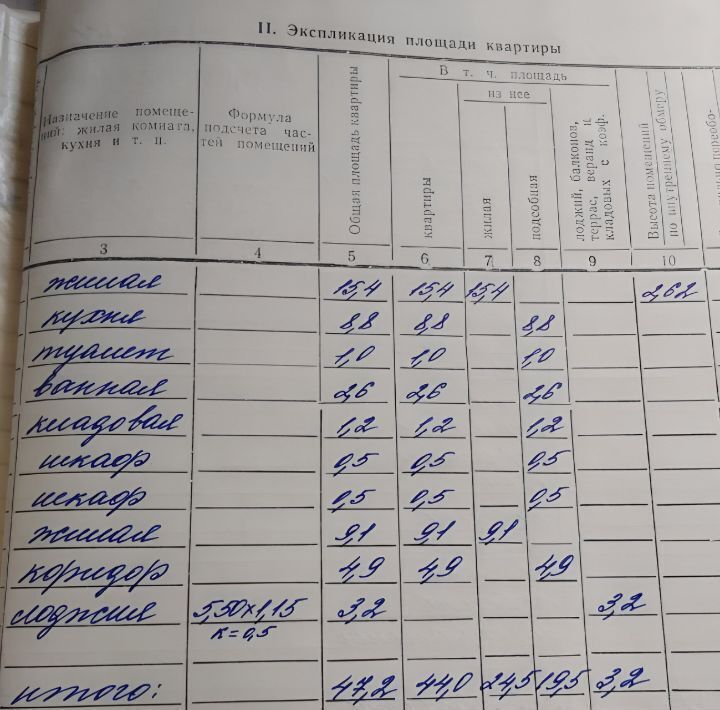 II. Экспликация площади квартиры
Назначение помеще-
ний: жилая комната,
кухня и т. п.
Формула
подсчета час-
тей помещений
Общая площадь квартиры
В т. ч. площадь
из нее
квартиры
жилая
подсобная
лоджий, балконов,
террас, веранд и
кладовых с коэф.
Высота помещений
по внутреннему обмеру
3 4 5 6 7 8 9 10
жилая 15,4 15,4 15,4 2,62
кухня 8,8 8,8 8,8
туалет 1,0 1,0 1,0
ванная 2,6 2,6 2,6
кладовая 1,2 1,2 1,2
шкаф 0,5 0,5 0,5
шкаф 0,5 0,5 0,5
жилая 9,1 9,1 9,1
коридор 4,9 4,9 4,9
лоджия 5,50×1,15 3,2 3,2
к=0,5
итого: 47,2 44,0 24,5 19,5 3,2